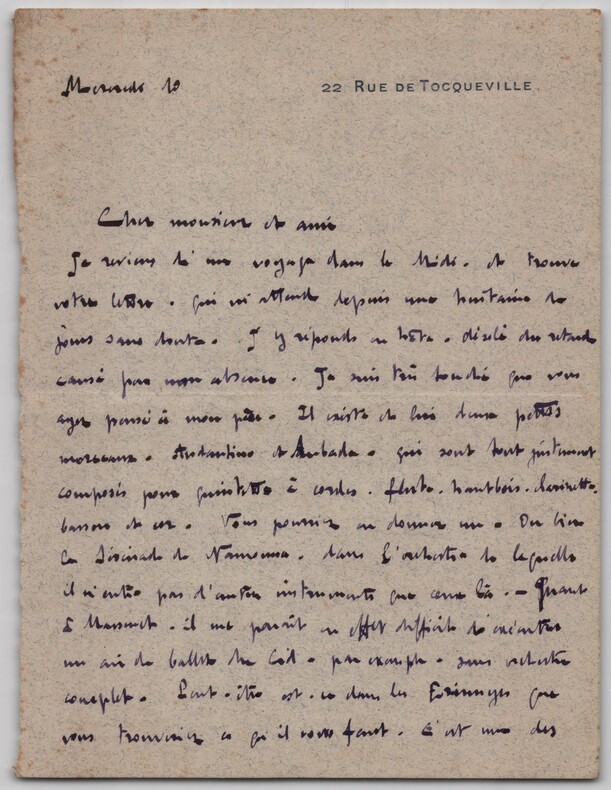 Mercredi 10
22 RUE DE TOCQUEVILLE.
Cher monsieur et ami
Je reviens d'un voyage dans le Midi. et trouve
votre lettre. qui m'attend depuis une huitaine de
jours sans doute. J'y réponds en hâte. désolé du retard
causé par mon absence. Je suis très touché que vous
ayez pensé à mon père. Il existe de lui deux petits
morceaux. Andantino et Aubade. qui sont tout justement
composés pour quintette à cordes. flûte. hautbois. clarinette.
basson et cor. Vous pourriez en donner un. Ou bien
la Sérénade de Namouna. dans l'orchestre de laquelle
il n'entre pas d'autres instruments que ceux là. - Quant
à Massenet. il me paraît en effet difficile d'exécuter
un air de ballet du Cid. par exemple. sans orchestre
complet. Peut-être est-ce dans les Erinnyes que
vous trouveriez ce qu'il vous faut. C'est une des